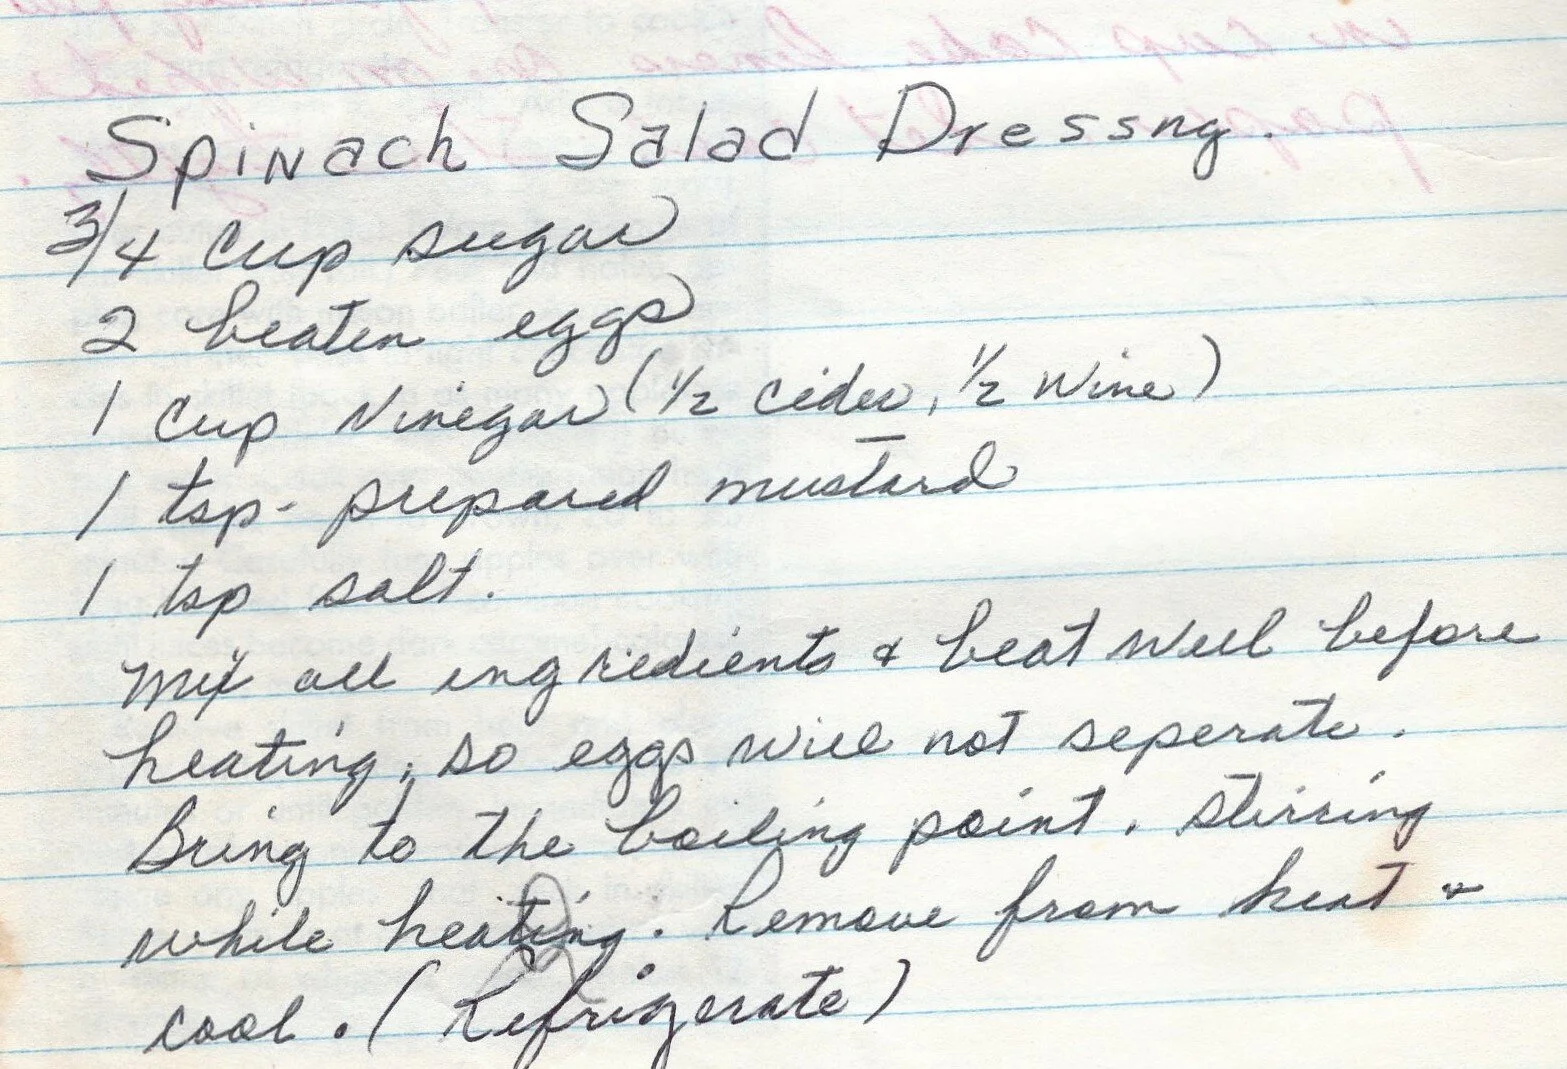 Spinach Salad Dressng.
3/4 cup sugar
2 beaten eggs
1 cup vinegar (1/2 cider, 1/2 wine)
1 tsp. prepared mustard
1 tsp salt.
Mix all ingredients & beat well before
heating, so eggs will not seperate.
Bring to the boiling point, stirring
while heating. Remove from heat &
cool. (Refrigerate)